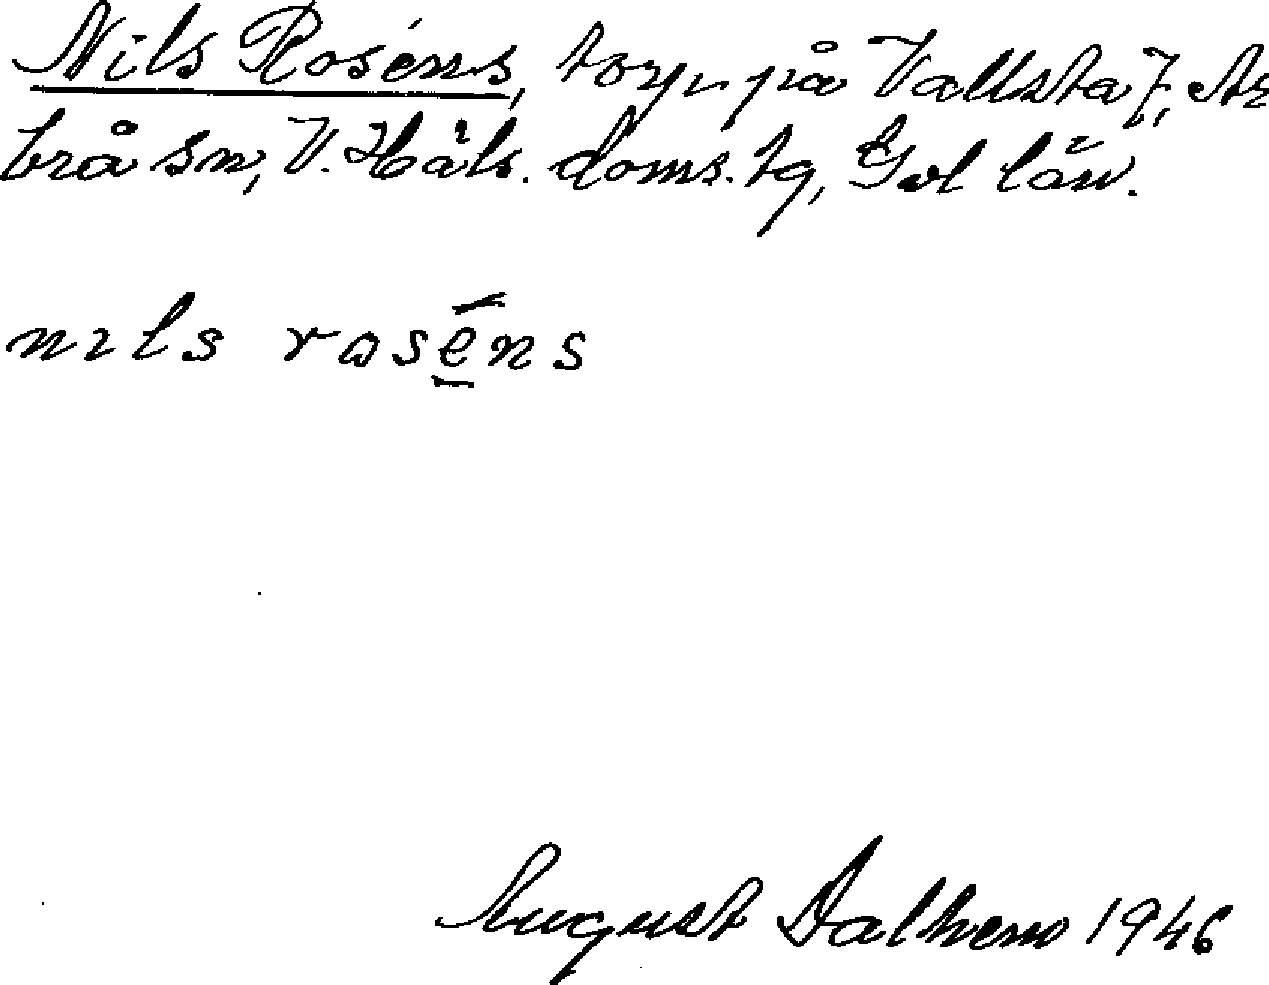 Nils Roséns, torp på Vallsta 7, Ar
brå sn, V. Häls. doms. tg, Gvl län.
nıls rosēns
August Dalhem 1946